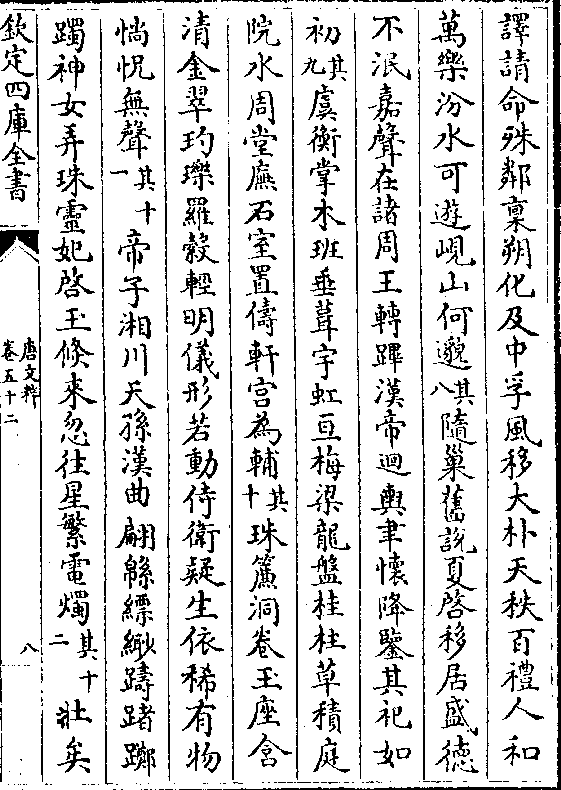 譯請命殊鄰稟朔化及中孚風移大朴天秩百禮人和
萬樂汾水可遊峴山何邈其八隨巢舊說夏啓移居盛德
不泯嘉聲在諸周王轉蹕漢帝迴輿聿懷降鑒其祀如
初其九虞衡掌木班垂葺宇虹亘梅梁龍盤桂柱草積庭
院水周堂廡石室置儔軒宫為輔其十珠簾洞卷玉座含
清金翠玓瓅羅縠輕明儀形若動侍衛疑生依稀有物
惝怳無聲其十一帝子湘川天孫漢曲翩緜縹緲躊躇躑
躅神女弄珠靈妃啓玉倏來忽往星繁電燭其十二壯矣
欽定四庫全書
唐文粹
卷五十二
八